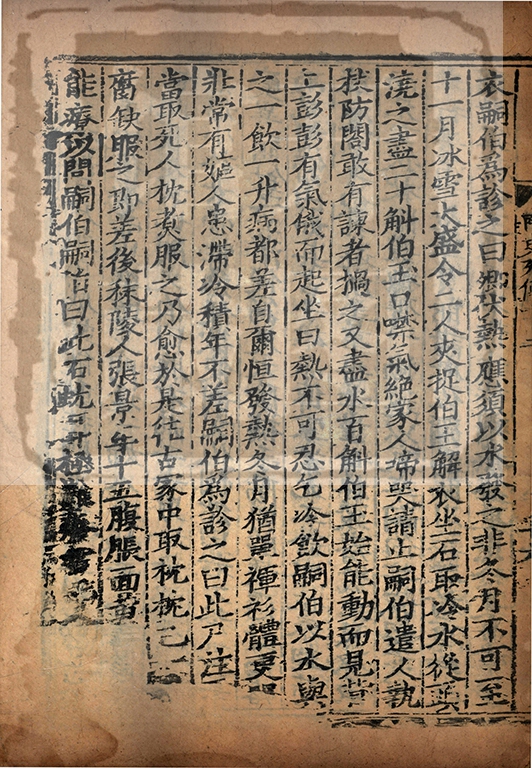 衣嗣伯爲診之曰卿伏熱應須以水發之非冬月不可至
十一月冰雪大盛令二人夾捉伯王解衣坐石取冷水從
澆之盡二十斛伯玉口噤氣絶家人啼哭請止嗣伯遣人執
杖防閤敢有諫者撾之又盡水百斛伯王始能動而見背
上彭彭有氣俄而起坐曰熱不可忍乞冷飲嗣伯以水與
之一飲一升病都差自爾恒發熱冬月猶單褌衫體更
壯常有嫗人患滯冷積年不差嗣伯爲診之曰此尸注
當取死人枕煮服之乃愈於是往古冢中取枕枕已
腐缺服之即差後秣陵人張景年十五腹脹面黃
能療以問嗣伯嗣伯曰此石蚘耳極